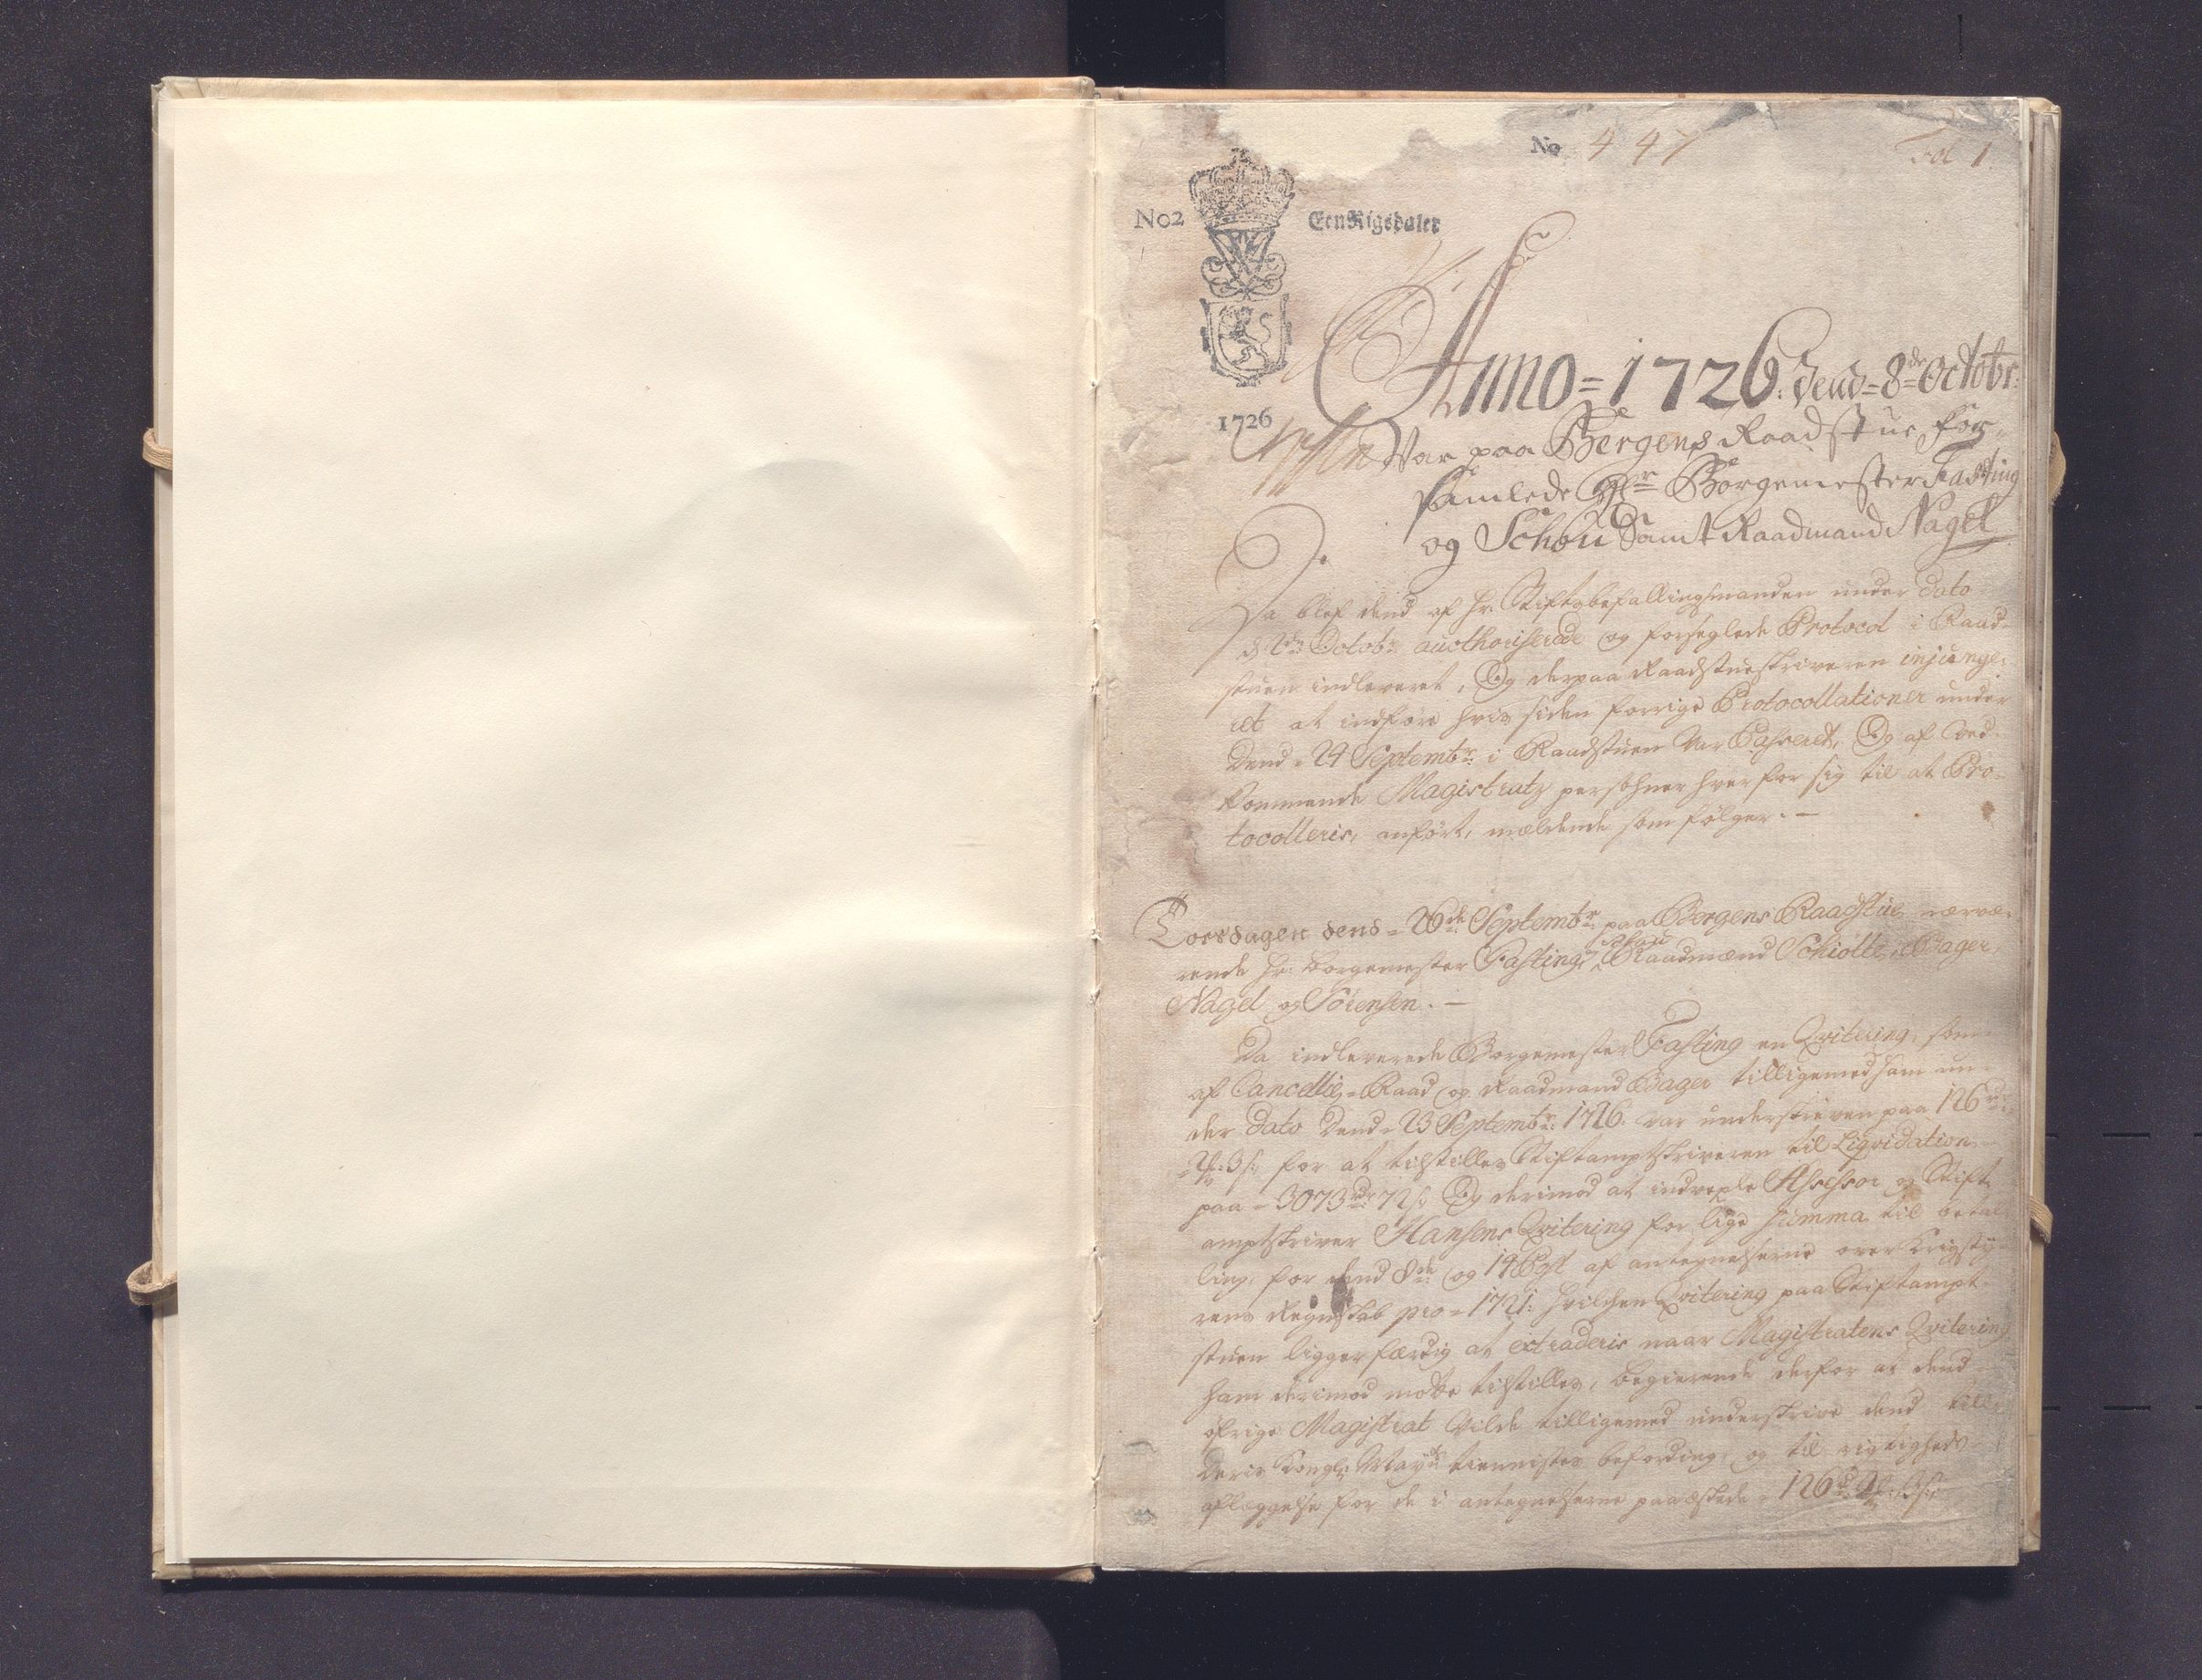 No 447
Fol 1.
No2
Een Rigsdaler
1726
Anno = 1726. dend = 8de Octobr:
Var paa Bergens Raadstue for,
samlede Hr Borgemester Fasting
og Schou Samt Raadmand Nagel
Da blef dend af Hr. Stiftsbefallingsmanden under dato
Octobr: authoriserede og forseglede Protocol i Raad-
stuen indleveret, Og derpaa Raadstueskriveren injunge-
ret at indføre hvis siden forrige Protocollationer under
Dend = 24 Septembr: i Raadstuen var Passeret, Og af Ved-
kommende Magistratz persohner hver for sig til at Pro-
tocolleris, anført, meldende som følger. —
Torsdagen dend = 26de Septembr: paa Bergens Raadstue nærvæ-
rende Hr: borgemester Fasting, Schou Raadmænd Schiøtte, Bager,
Nagel og Sörensen. —
Da indleverede Borgemester Fasting en Qvitering, som
af Cancellie-Raad og Raadmand Bager tilligemed ham un-
der dato Dend = 23 Septembr: 1726. var underskreven paa 126 rd:
for at tilstilles Stiftamptskriveren til Liqvidation
paa = 3073 rd: Og derimod at indvexle Assessor og Stift-
amptskriver Hansens Qvitering for lige Summa til betal-
ling for dend 8de og 19 Pgt af antegnelserne over
rens Regnskab pro = 1721: hvilchen Qvitering paa Stiftampt-
stuen ligger færdig at extraderis naar Magistratens Qvitering
ham derimod motte tilstilles, begierende derfor at dend
øfrige Magistrat Vilde tilligemed underskrive dend till
Deris Kongl: May:ts tiennistes befording, og til rigtigheds
aflæggelse for de i antegnelserne paaæskede = 126 rd: